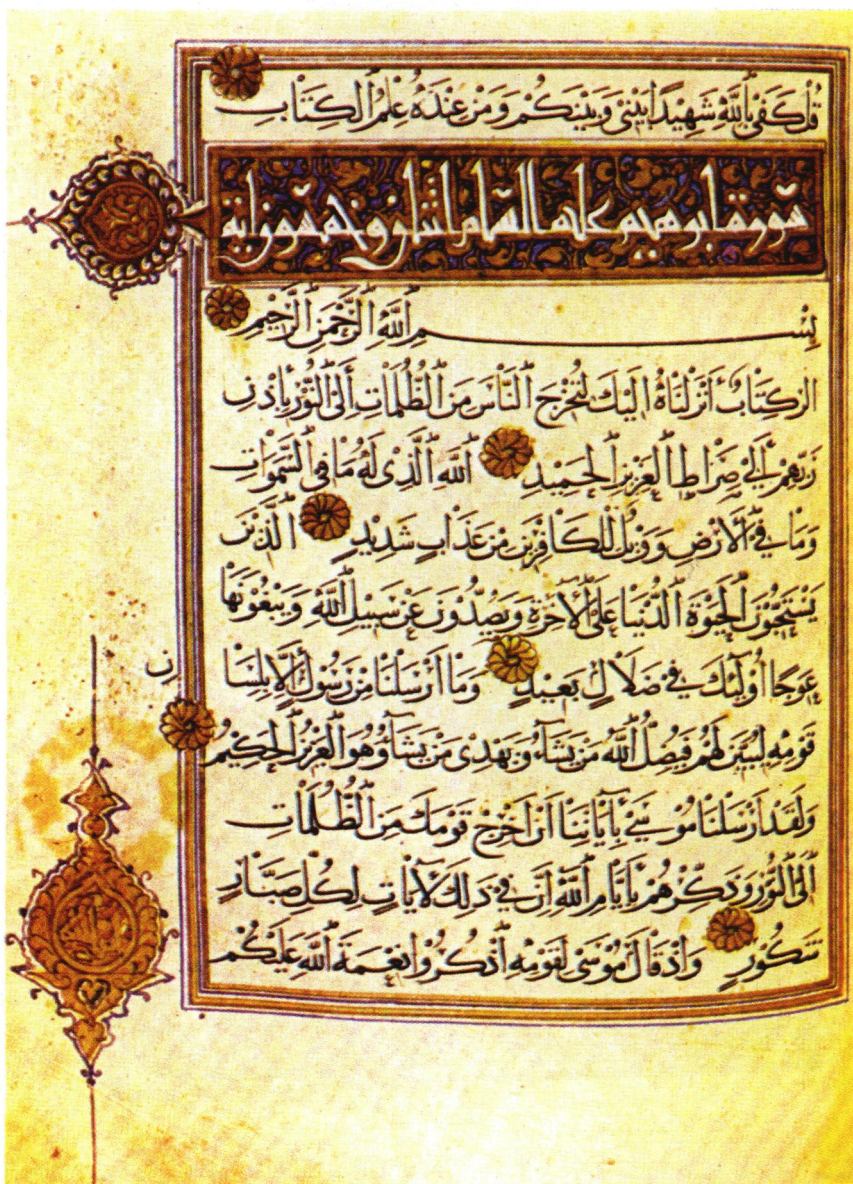 قُلْ كَفَىٰ بِٱللَّهِ شَهِيدًا بَيْنِى وَبَيْنَكُمْ وَمَنْ عِنْدَهُ عِلْمُ ٱلْكِتَابِ
سورة ابرهيم عليه السلام اثنان وخمسون اية
بِسْمِ ٱللَّهِ ٱلرَّحْمَٰنِ ٱلرَّحِيمِ
الر كِتَابٌ أَنْزَلْنَاهُ إِلَيْكَ لِتُخْرِجَ ٱلنَّاسَ مِنَ ٱلظُّلُمَاتِ إِلَى ٱلنُّورِ بِإِذْنِ
رَبِّهِمْ إِلَىٰ صِرَاطِ ٱلْعَزِيزِ ٱلْحَمِيدِ ٱللَّهِ ٱلَّذِى لَهُ مَا فِى ٱلسَّمَوَاتِ
وَمَا فِي ٱلْأَرْضِ وَوَيْلٌ لِلْكَافِرِينَ مِنْ عَذَابٍ شَدِيدٍ ٱلَّذِينَ
يَسْتَحِبُّونَ ٱلْحَيَوٰةَ ٱلدُّنْيَا عَلَى ٱلْأَخِرَةِ وَيَصُدُّونَ عَنْ سَبِيلِ ٱللَّهِ وَيَبْغُونَهَا
عِوَجًا أُولَٰئِكَ فِي ضَلَالٍ بَعِيدٍ وَمَا أَرْسَلْنَا مِنْ رَسُولٍ إِلَّا بِلِسَا
نِ
قَوْمِهِ لِيُبَيِّنَ لَهُمْ فَيُضِلُّ ٱللَّهُ مَنْ يَشَآءُ وَيَهْدِى مَنْ يَشَآءُ وَهُوَ ٱلْعَزِيزُ ٱلْحَكِيمُ
وَلَقَدْ أَرْسَلْنَا مُوسَىٰ بِآيَاتِنَا أَنْ أَخْرِجْ قَوْمَكَ مِنَ ٱلظُّلُمَاتِ
إِلَى ٱلنُّورِ وَذَكِّرْهُمْ بِأَيَّامِ ٱللَّهِ إِنَّ فِي ذَلِكَ لَآيَاتٍ لِكُلِّ صَبَّارٍ
شَكُورٍ وَإِذْ قَالَ مُوسَى لِقَوْمِهِ ٱذْكُرُوا نِعْمَةَ ٱللَّهِ عَلَيْكُمْ